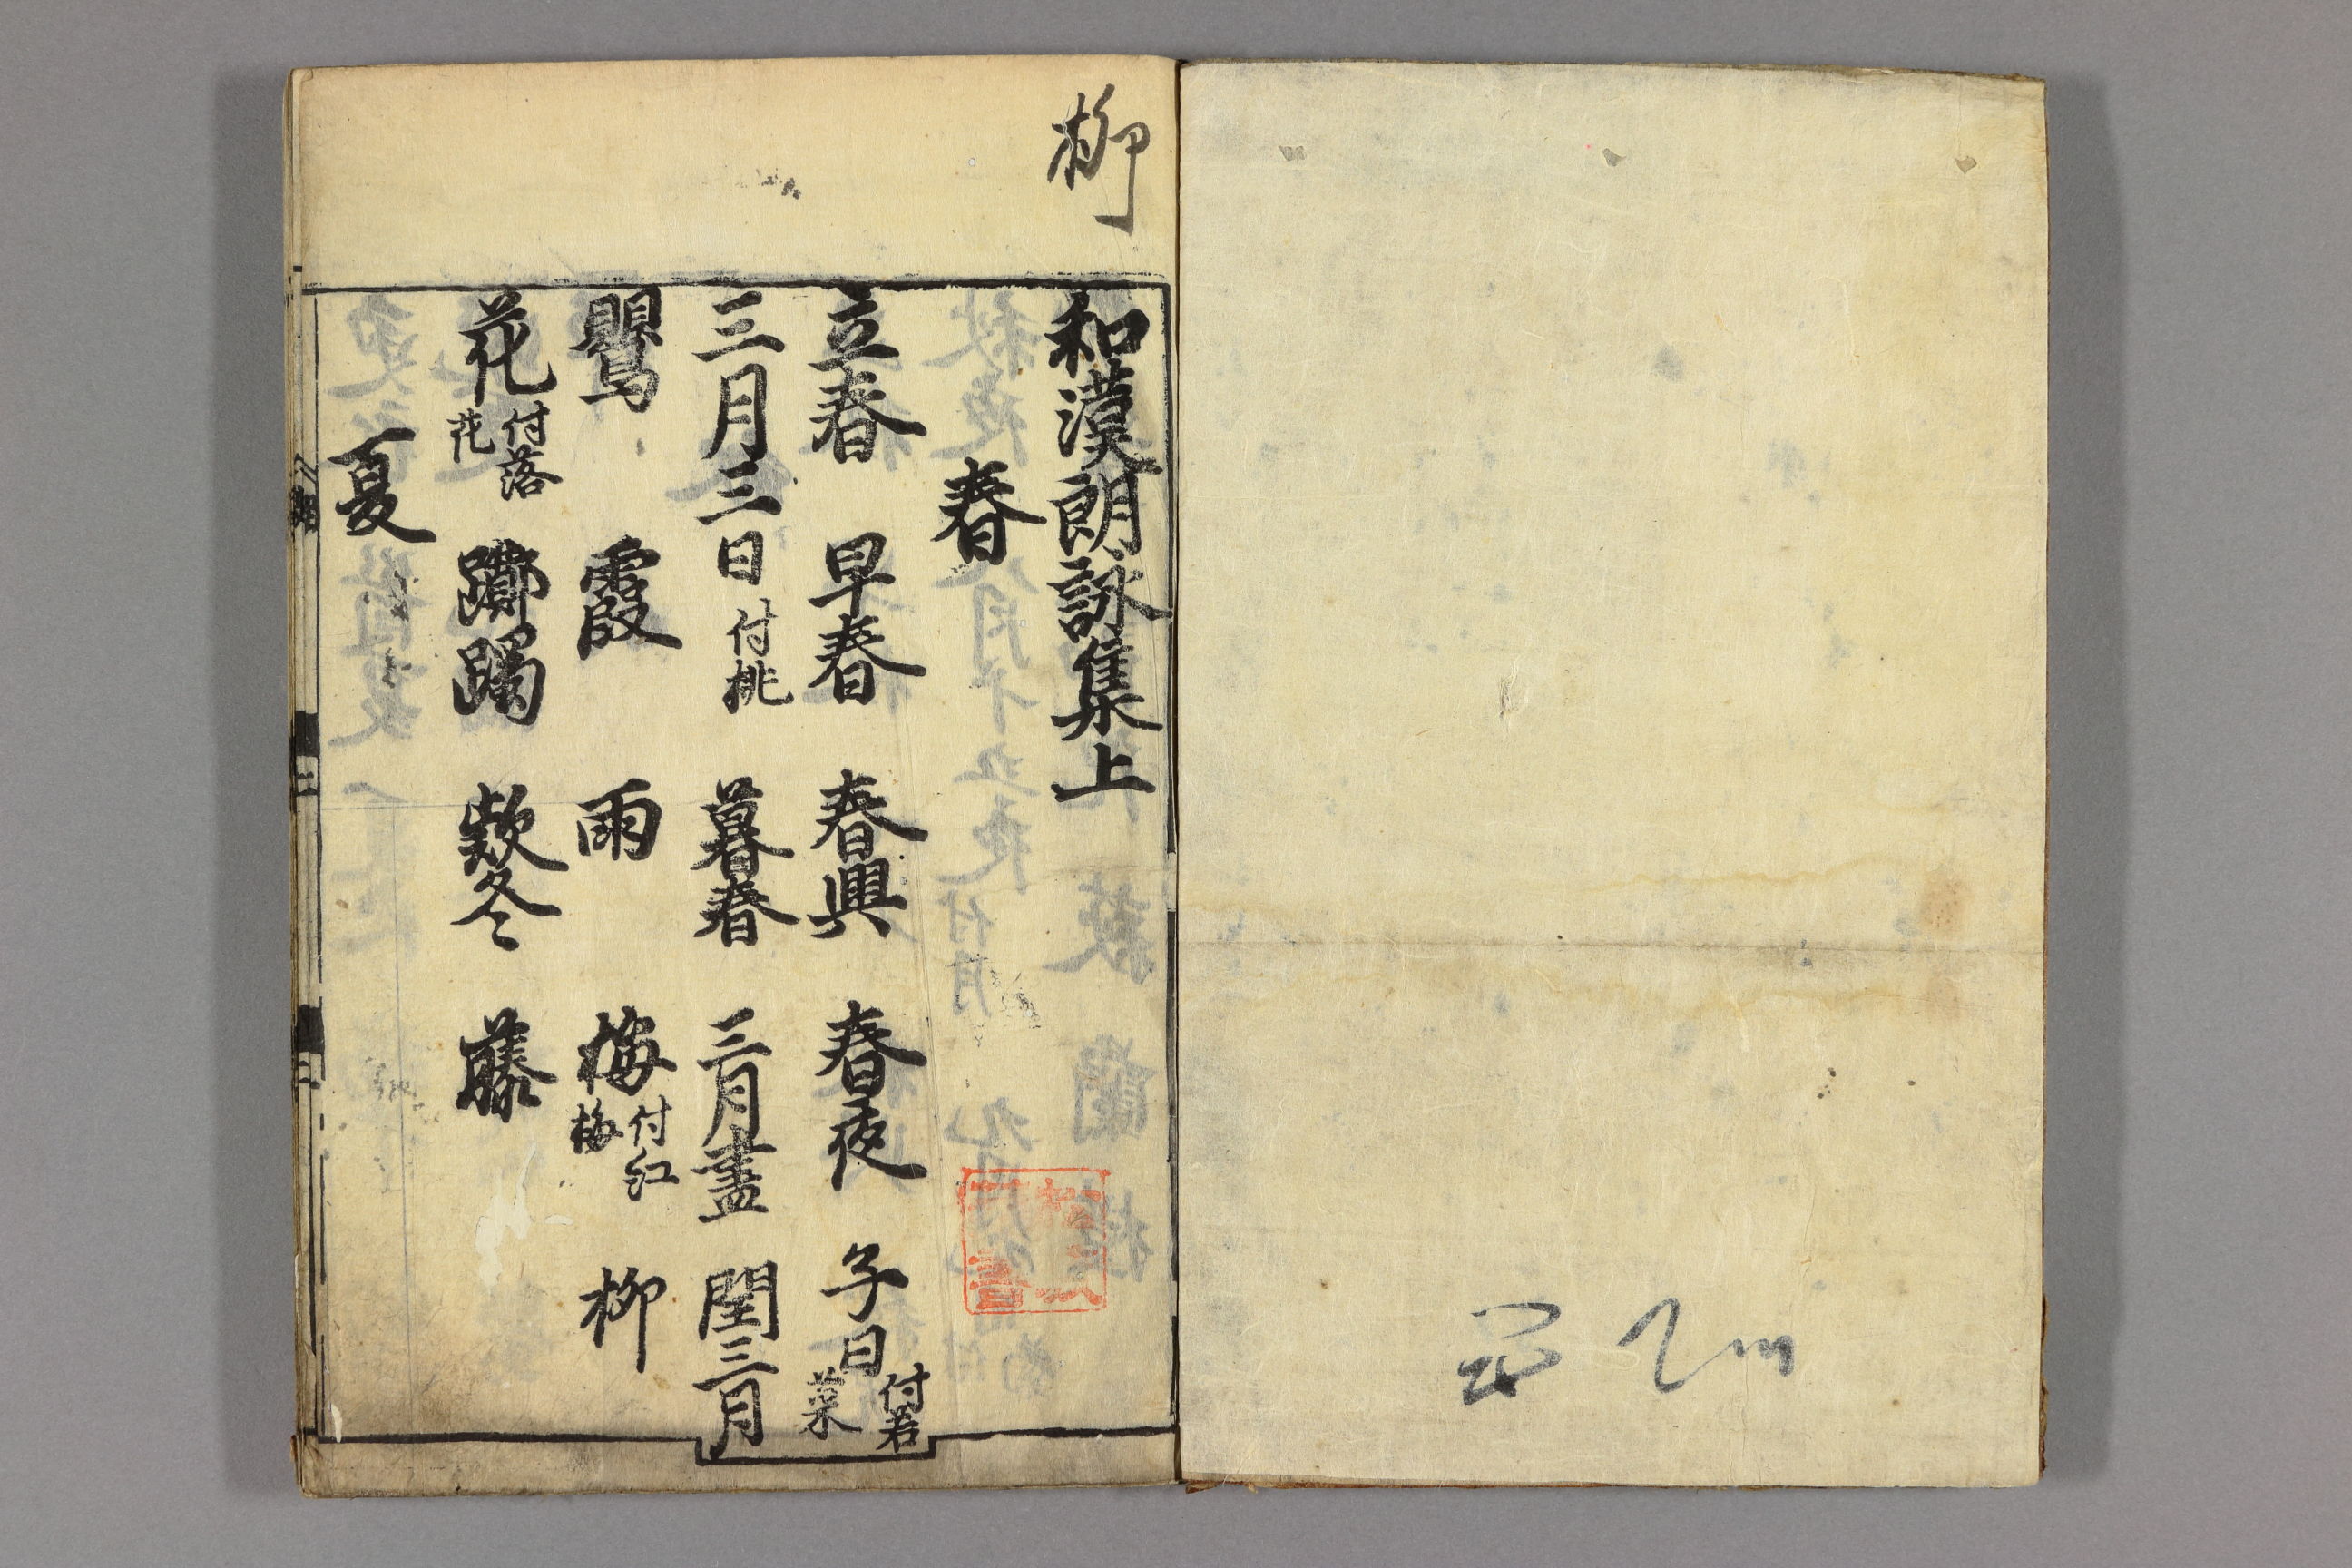 柳
和漢朗詠集上
春
立春 早春 春興 春夜 子日付若菜
三月三日付桃 暮春 三月盡 閏三月
鸎 霞 雨 梅付紅梅 柳
花付落花 躑躅 欵冬 藤
夏